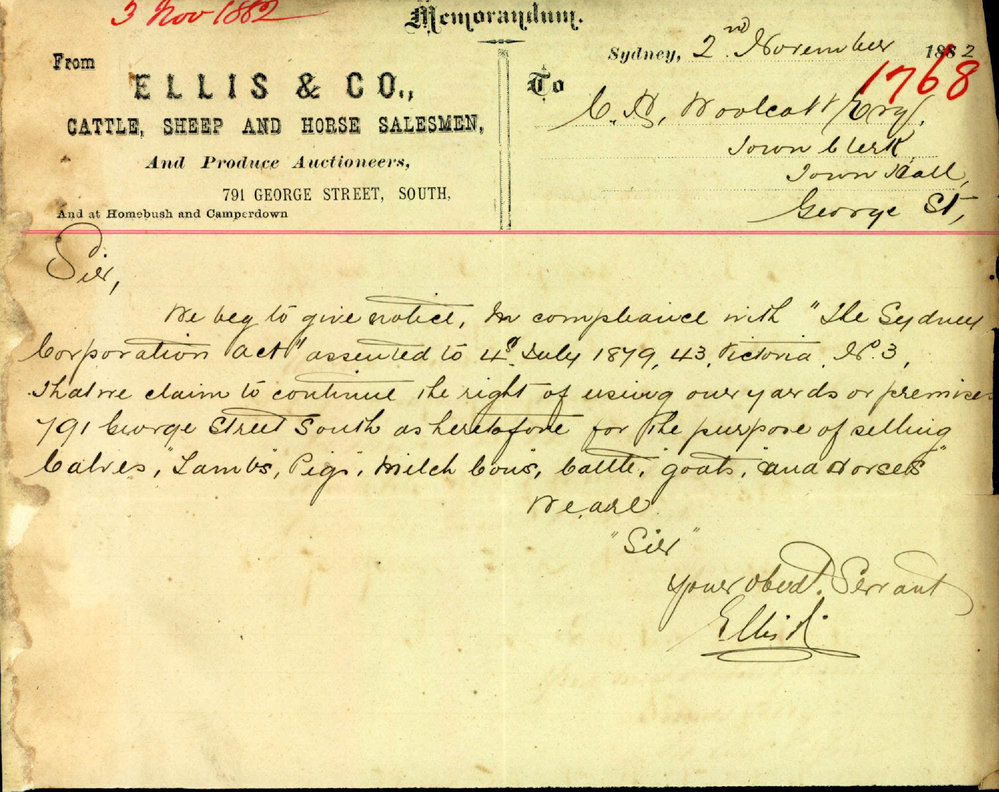 3 Nov 1882
Memorandum.
Sydney, 2nd November 1882
1768
From
ELLIS & CO.,
CATTLE, SHEEP AND HORSE SALESMEN,
And Produce Auctioneers,
791 GEORGE STREET, SOUTH,
And at Homebush and Camperdown
To
C. H. Woolcott Esq,
Town Clerk,
Town Hall,
George St,
Sir,
We beg to give notice, In compliance with "The Sydney
Corporation Act" assented to 4th July 1879, 43, Victoria, No. 3,
That we claim to continue the right of using our yards or premises
791 George Street South as heretofore for the purpose of selling
Calves, "Lambs", Pigs, Milch Cows, Cattle, "goats," and Horses"
We are
"Sir"
Your Obedt. Servant
Ellis